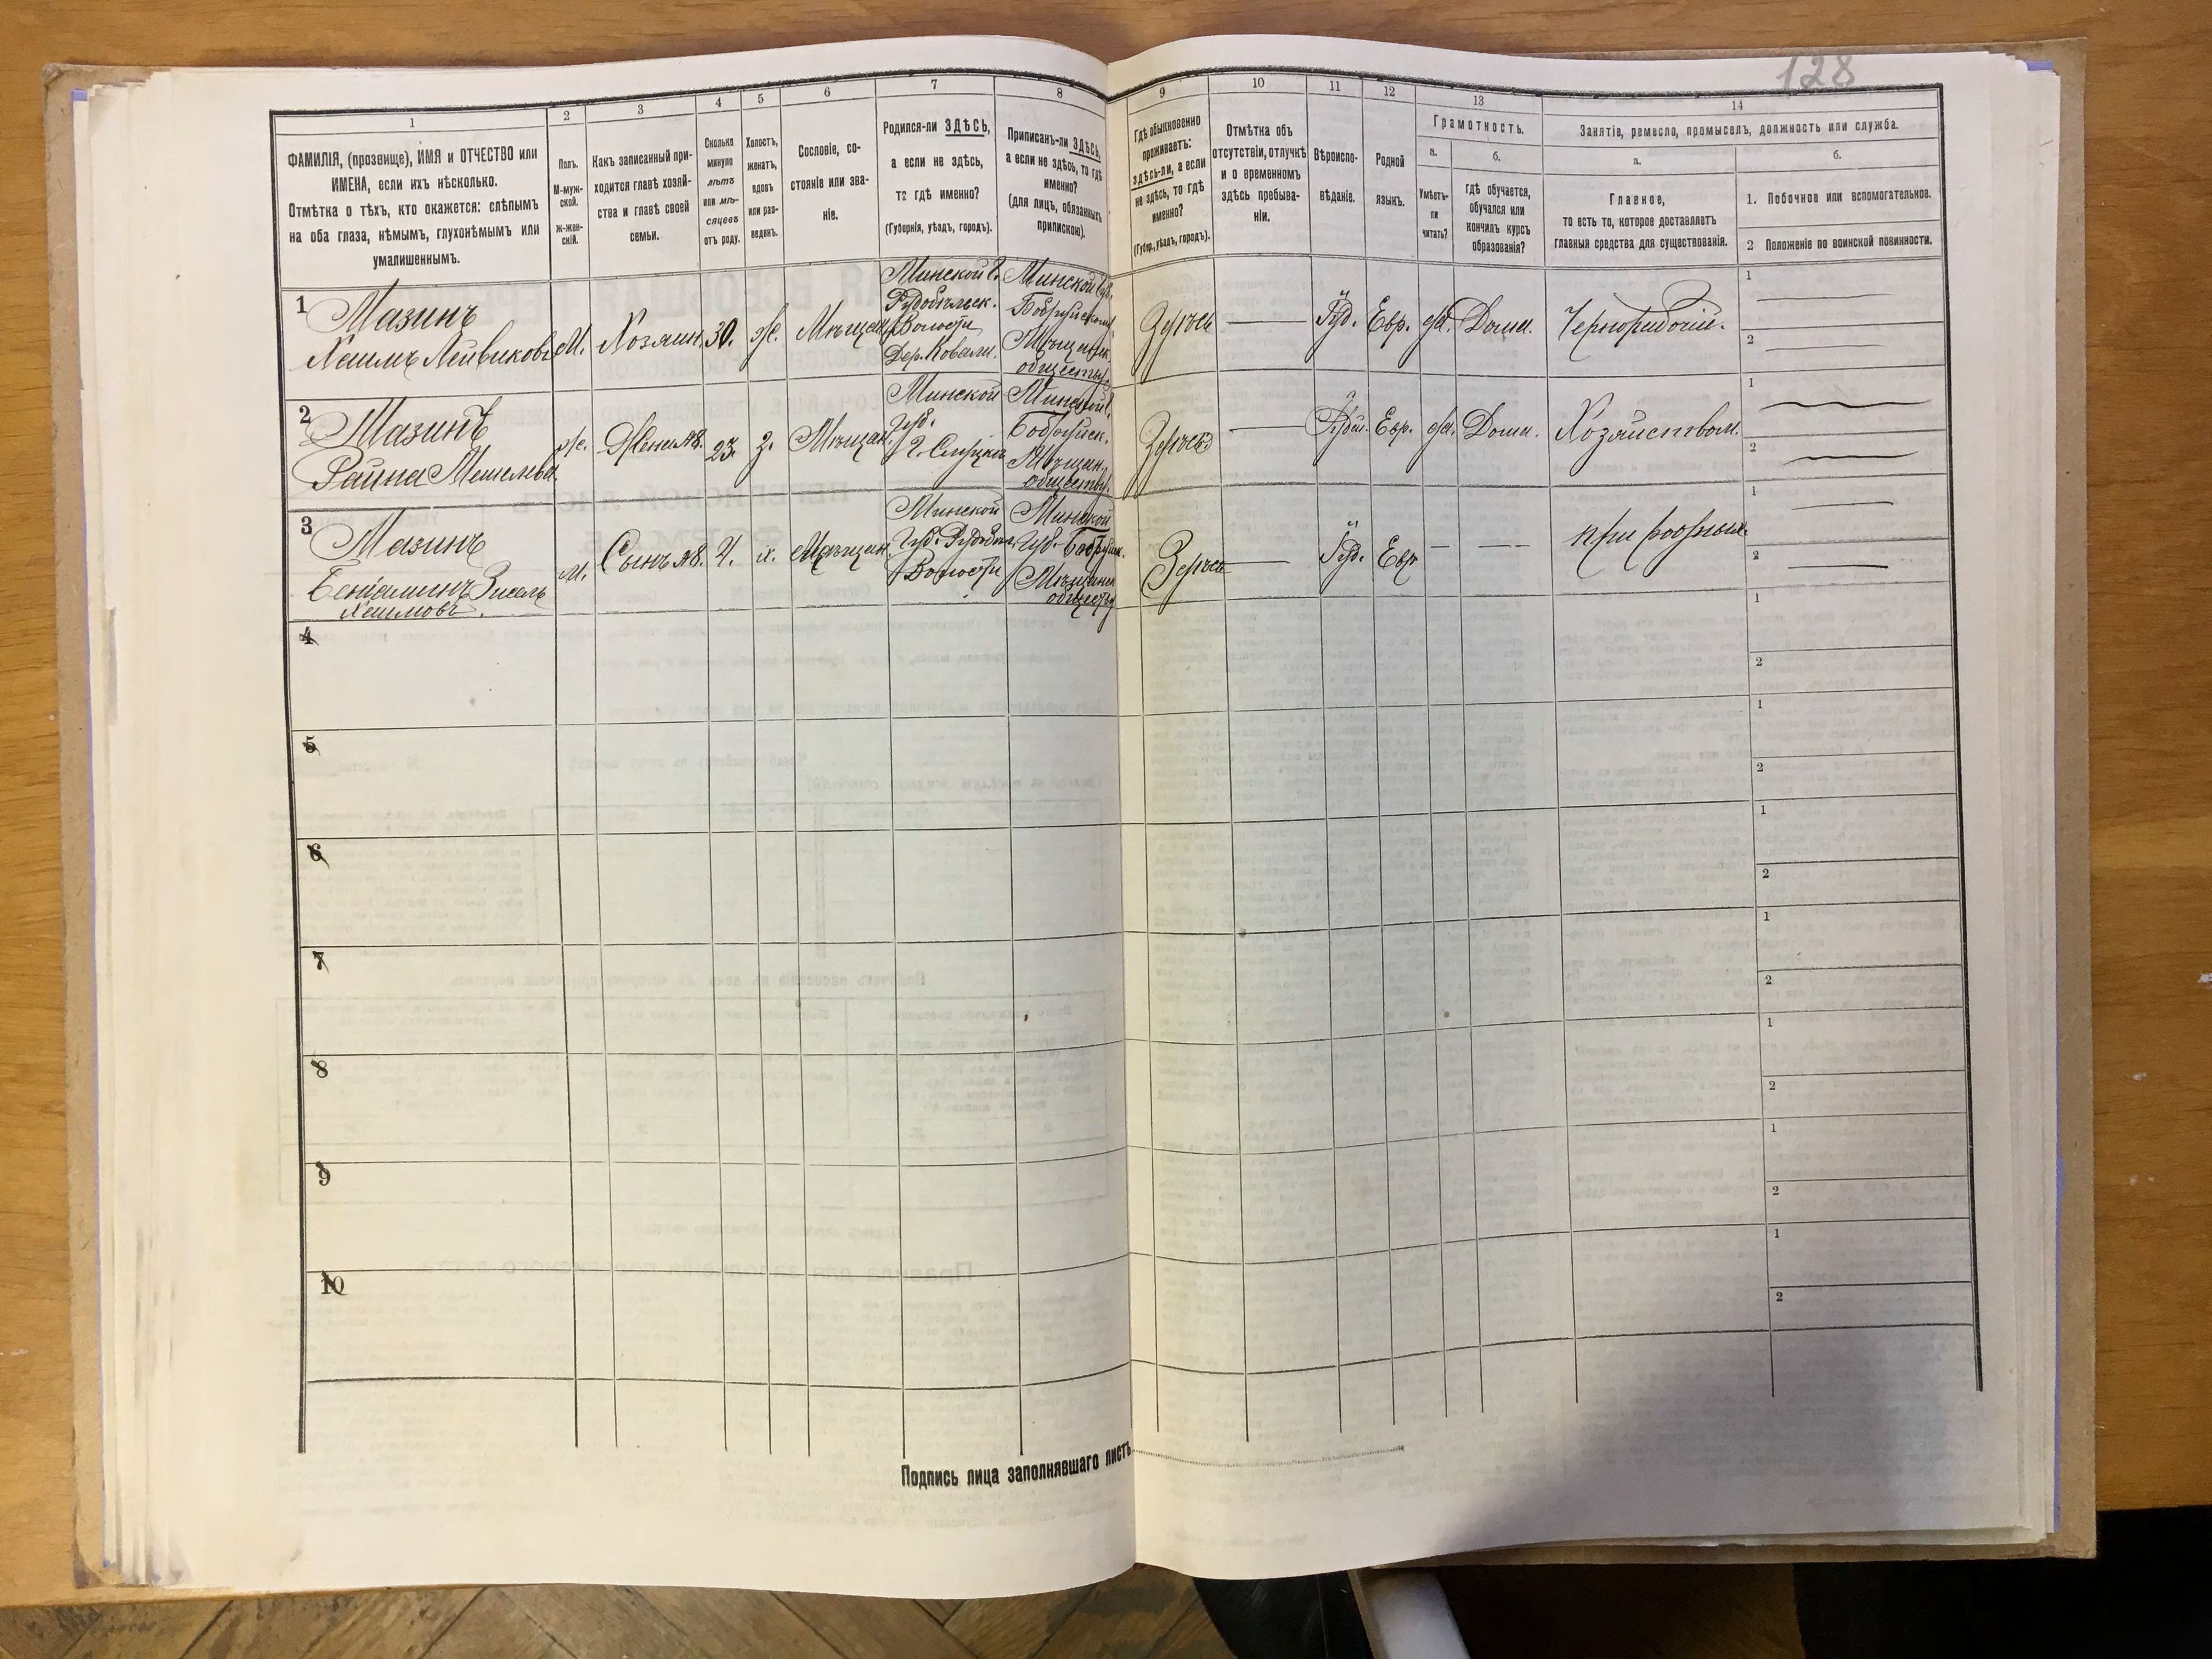 128
1
2
3
4
5
6
7
8
9
10
11
12
13
14
ФАМИЛІЯ, (прозвище), ИМЯ и ОТЧЕСТВО или
ИМЕНА, если ихъ нѣсколько.
Отмѣтка о тѣхъ, кто окажется: слѣпымъ
на оба глаза, нѣмымъ, глухонѣмымъ или
умалишеннымъ.
Полъ.
М-муж-
ской.
Ж-жен-
скій.
Какъ записанный при-
ходится главѣ хозяй-
ства и главѣ своей
семьи.
Сколько
минуло
лѣтъ
или мѣ-
сяцевъ
отъ роду.
Холостъ,
женатъ,
вдовъ
или раз-
веденъ.
Сословіе, со-
стояніе или зва-
ніе.
Родился-ли ЗДѢСЬ,
а если не здѣсь,
то гдѣ именно?
(Губернія, уѣздъ, городъ).
Приписанъ-ли ЗДѢСЬ,
а если не здѣсь, то гдѣ
именно?
(для лицъ, обязанныхъ
припискою).
Гдѣ обыкновенно
проживаетъ:
здѣсь-ли, а если
не здѣсь, то гдѣ
именно?
(Губер., уѣздъ, городъ).
Отмѣтка объ
отсутствіи, отлучкѣ
и о временномъ
здѣсь пребыва-
ніи.
Вѣроиспо-
вѣданіе.
Родной
языкъ.
Грамотность.
а.
б.
Умѣетъ-
ли
читать?
гдѣ обучается,
обучался или
кончилъ курсъ
образованія?
Занятіе, ремесло, промыселъ, должность или служба.
а.
б.
Главное,
то есть то, которое доставляетъ
главныя средства для существованія.
1. Побочное или вспомогательное.
2 Положеніе по воинской повинности.
1
Мазинъ
Хаимъ Лейвиковъ
М. Хозяин. 30. Ж. Мѣщан.
Минской г.
Рудобѣльск.
Волости
Дер. Ковали.
Минской Губ.
Бобруйскому
Мѣщанск.
обществу.
Здѣсь
Іуд. Евр. да. Дома. Чернорабочій.
1
2
2
Мазинъ
Ж. Жена 23. З. Мѣщан.
Минской
Губ.
г. Слуцкъ
Минской г.
Бобруйск.
Мѣщан.
обществу.
Здѣсь
Іуд. Евр. да. Дома. Хозяйством.
1
2
3
Мазинъ
Беніаминъ Зисель
Хаимовъ.
М. Сынъ 4. х. Мѣщан.
Минской
Губ.
Волости
Минской
Губ. Бобруйск.
Мѣщанск.
обществу
Здѣсь
Іуд. Евр при родныхъ
1
2
4
1
2
5
1
2
6
1
2
7
1
2
8
1
2
9
1
2
10
1
2
Подпись лица заполнявшаго листъ